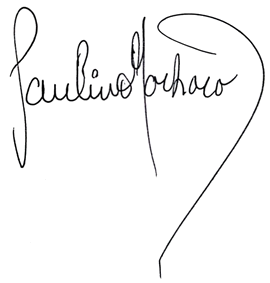 Paulino Machaco